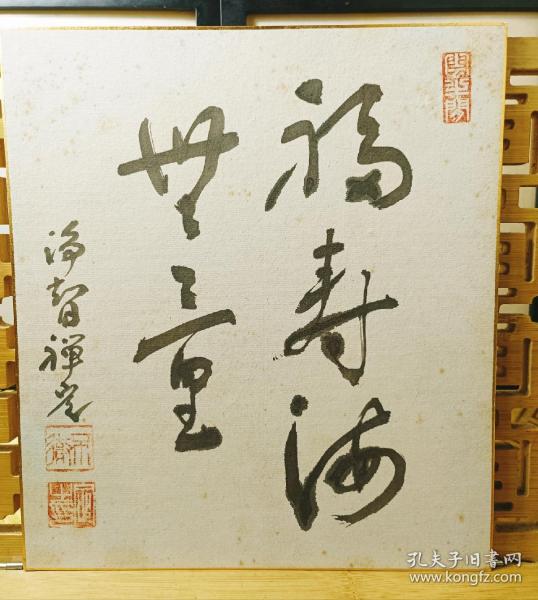 福寿海
無量
浄智禅定
孔夫子旧书网
www.kongfz.com